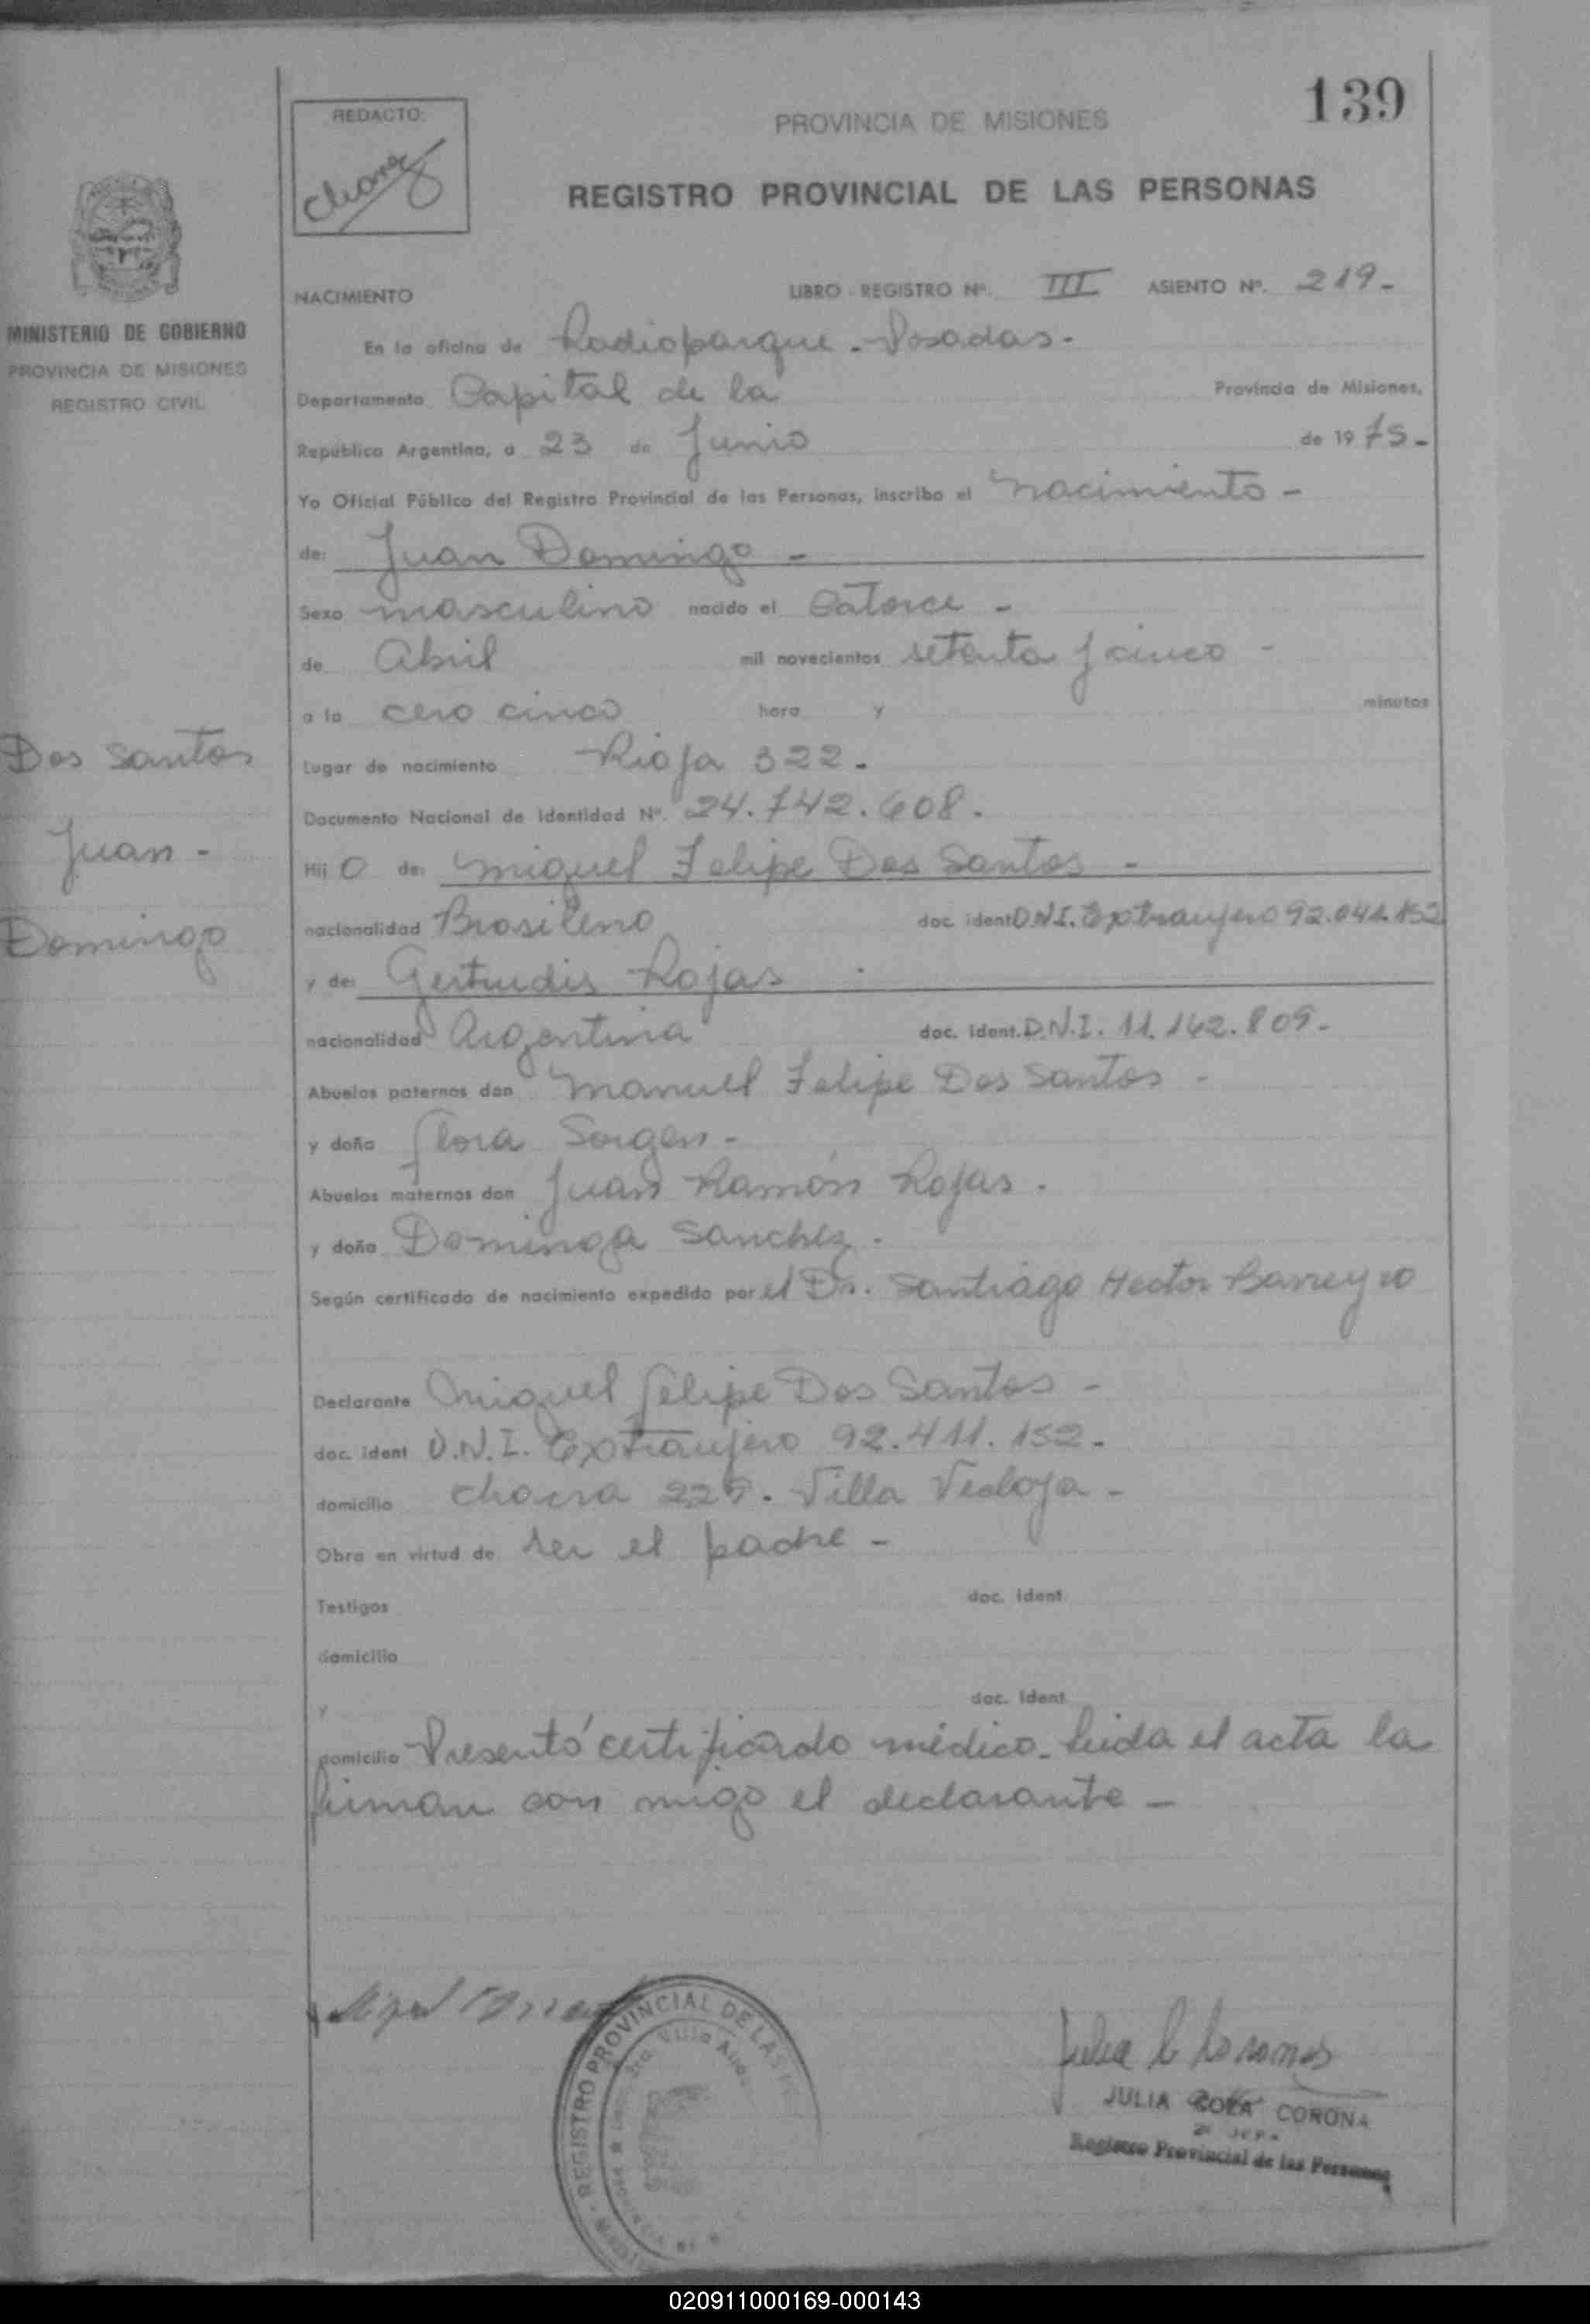 139
REDACTO:
PROVINCIA DE MISIONES
REGISTRO PROVINCIAL DE LAS PERSONAS
MINISTERIO DE GOBIERNO
PROVINCIA DE MISIONES
REGISTRO CIVIL
NACIMIENTO LIBRO REGISTRO Nº. III ASIENTO Nº. 219-
En la oficina de Radioparque - Posadas-
Departamento Capital de la Provincia de Misiones,
República Argentina, a 23 de Junio de 1975-
Yo Oficial Público del Registro Provincial de las Personas, inscribo el nacimiento-
de: Juan Domingo -
Sexo masculino nacido el catorce -
de Abril mil novecientos setenta y cinco -
a la cero cinco hora y minutos
Lugar de nacimiento Rioja 322.
Documento Nacional de Identidad Nº. 24.742.608.
Hij o de: Miguel Felipe Dos Santos -
nacionalidad Brasileno doc. ident D.N.I. Extranjero 92.041.152
y de: Gertrudis Rojas
nacionalidad Argentina doc. ident. D.N.I. 11.142.809-
Abuelos paternos don Manuel Felipe Dos Santos -
y doña Flora Sorgen-
Abuelos maternos don Juan Ramón Rojas.
y doña Dominga Sanchez.
Según certificado de nacimiento expedido por el Dr. Santiago Hector Barreyro
Declarante Miguel Felipe Dos Santos -
doc. ident D.N.I. Extranjero 92.411.152-
domicilio chacra 229. Villa
Obra en virtud de ser el padre -
Testigos doc. ident.
domicilio
y doc. ident.
domicilio Presentó certificado médico. Leida el acta la
firman con migo el declarante -
Dos Santos
Juan -
Domingo
REGISTRO PROVINCIAL DE LAS
JULIA CORONA
Registro Provincial de las Personas
020911000169-000143